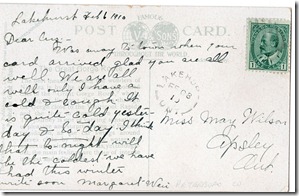 Lakehurst Feb 6 1910
POST CARD.
Dear Cuz -
Was may to town when your
card arrived glad you are all
well. We are all
well only I have a
cold & cough. It
is quite cold yester-
day & to-day. I think
that to-night will
be the coldest we have
had this winter
write soon Margaret
LAKEHURST
FE 8
10
ONT
Miss May Wilson
Apsley
Ont.